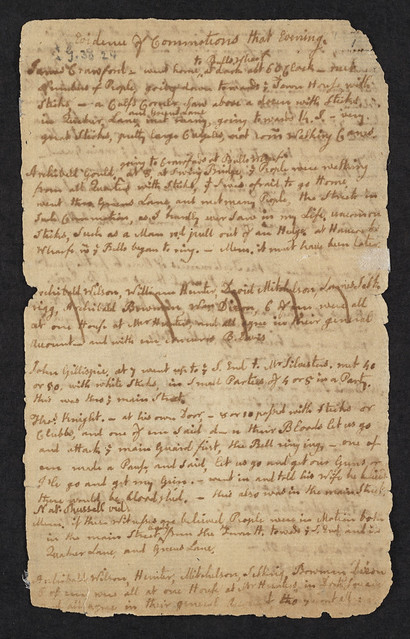 Evidence of Commotions that Evening.
to Bulls Wharf
James Crawford. went home, at dark at 6 o'Clock — met
Numbers of People, going down towards the Town House with
Sticks. — at Calfs Corner, saw above a dozen with Sticks.
in Quaker Lane, and Greens Lane met many, going toward K. S. — very
great Sticks, pretty large Cudgells, not common Walking Canes
going to Crawfords at Bulls Wharf
Archibald Gould, at 8, at Swing Bridge, the People were walking
from all Quarters with Sticks, I was afraid to go Home,
went thro Greens Lane, and met many People, the Streets in
such Commotion, as I hardly ever saw in my Life, uncommon
Sticks, such as a Man wd pull out of an Hedge. at Hancocks
Wharf, the Bells began to ring. — Mem. it must have been later
Archibald Wilson, William Hunter, David Mitchelson, James
Archibald Bowman, Wm Dixon, 6 of em were all
at one House at Mr Hunters, and all agree in their general
Accounts and with
John Gillispie, at 7 went up to the S. End to Mr Silvesters. met 40
or 50. with white Sticks, in small Parties of 4 or 5 in a Party.
this was thro the main Street
Thos. Knight. — at his own Dorr, — 8 or 10 passed with Sticks or
Clubbs, and one of em said d—n their Bloods let us go
and attack the main Guard first, the Bell ringing, — one of
em made a Pause, and said, let us go and get our Guns, or
I'le go and get my Guns. — went in and told his Wife he knew
there would be blood shed. — this also was in the main Street.
Nat. Thussell
Mem. if these Witnesses are believed People were in Motion both
in the main Street from the town H. towards the S. End, and in
Quaker Lane, and Greens Lane.
Archibald Wilson, Hunter, Mitchelson, Bowman Dixon
6 of em were all at one House at Mr Hunters,
all agree in their general